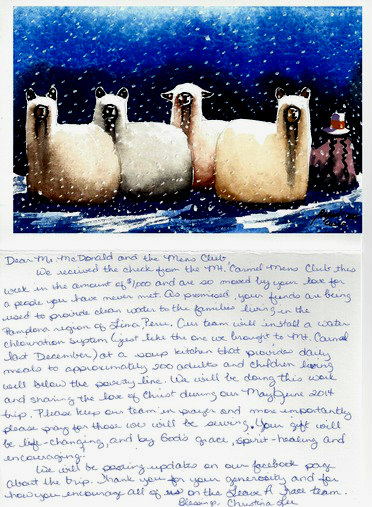 Dear Mr. McDonald and the Mens Club,
We received the check from the Mt. Carmel Mens Club this
week in the amount of $1,000 and are so moved by your love for
a people you have never met. As promised your funds are being
used to provide clean water to the families living in the
Pamplona region of Lima, Peru. Our team will install a water
chlorination system (just like the one we brought to Mt. Carmel
last December) at a soup kitchen that provides daily
meals to approximately 300 adults and children living
well below the poverty line. We will be doing this work
and sharing the love of Christ during our May/June 2014
trip. Please keep our team in prayer and more importantly
please pray for those we will be serving. Your gift will
be life-changing, and by God's grace, spirit-healing and
encouraging.
We will be posting updates on our facebook page
about the trip. Thank you for your generosity and for
how you encourage all of us on the Leave A team.
Blessings, Christina Lee